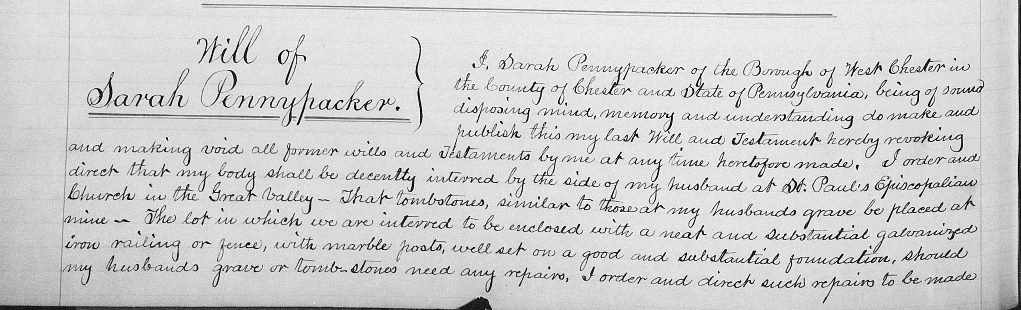 Will of
Sarah Pennypacker.
I, Sarah Pennypacker of the Borough of West Chester in
the County of Chester and State of Pennsylvania, being of sound
disposing mind, memory and understanding do make and
publish this my last Will and Testament hereby revoking
and making void all former wills and Testaments by me at any time heretofore made. I order and
direct that my body shall be decently interred by the side of my husband at St. Paul's Episcopalian
Church in the Great Valley – That tombstones, similar to those at my husbands grave be placed at
mine – The lot in which we are interred to be enclosed with a neat and substantial galvanized
iron railing or fence, with marble posts, well set on a good and substantial foundation, should
my husbands grave or tomb-stones need any repairs, I order and direct such repairs to be made